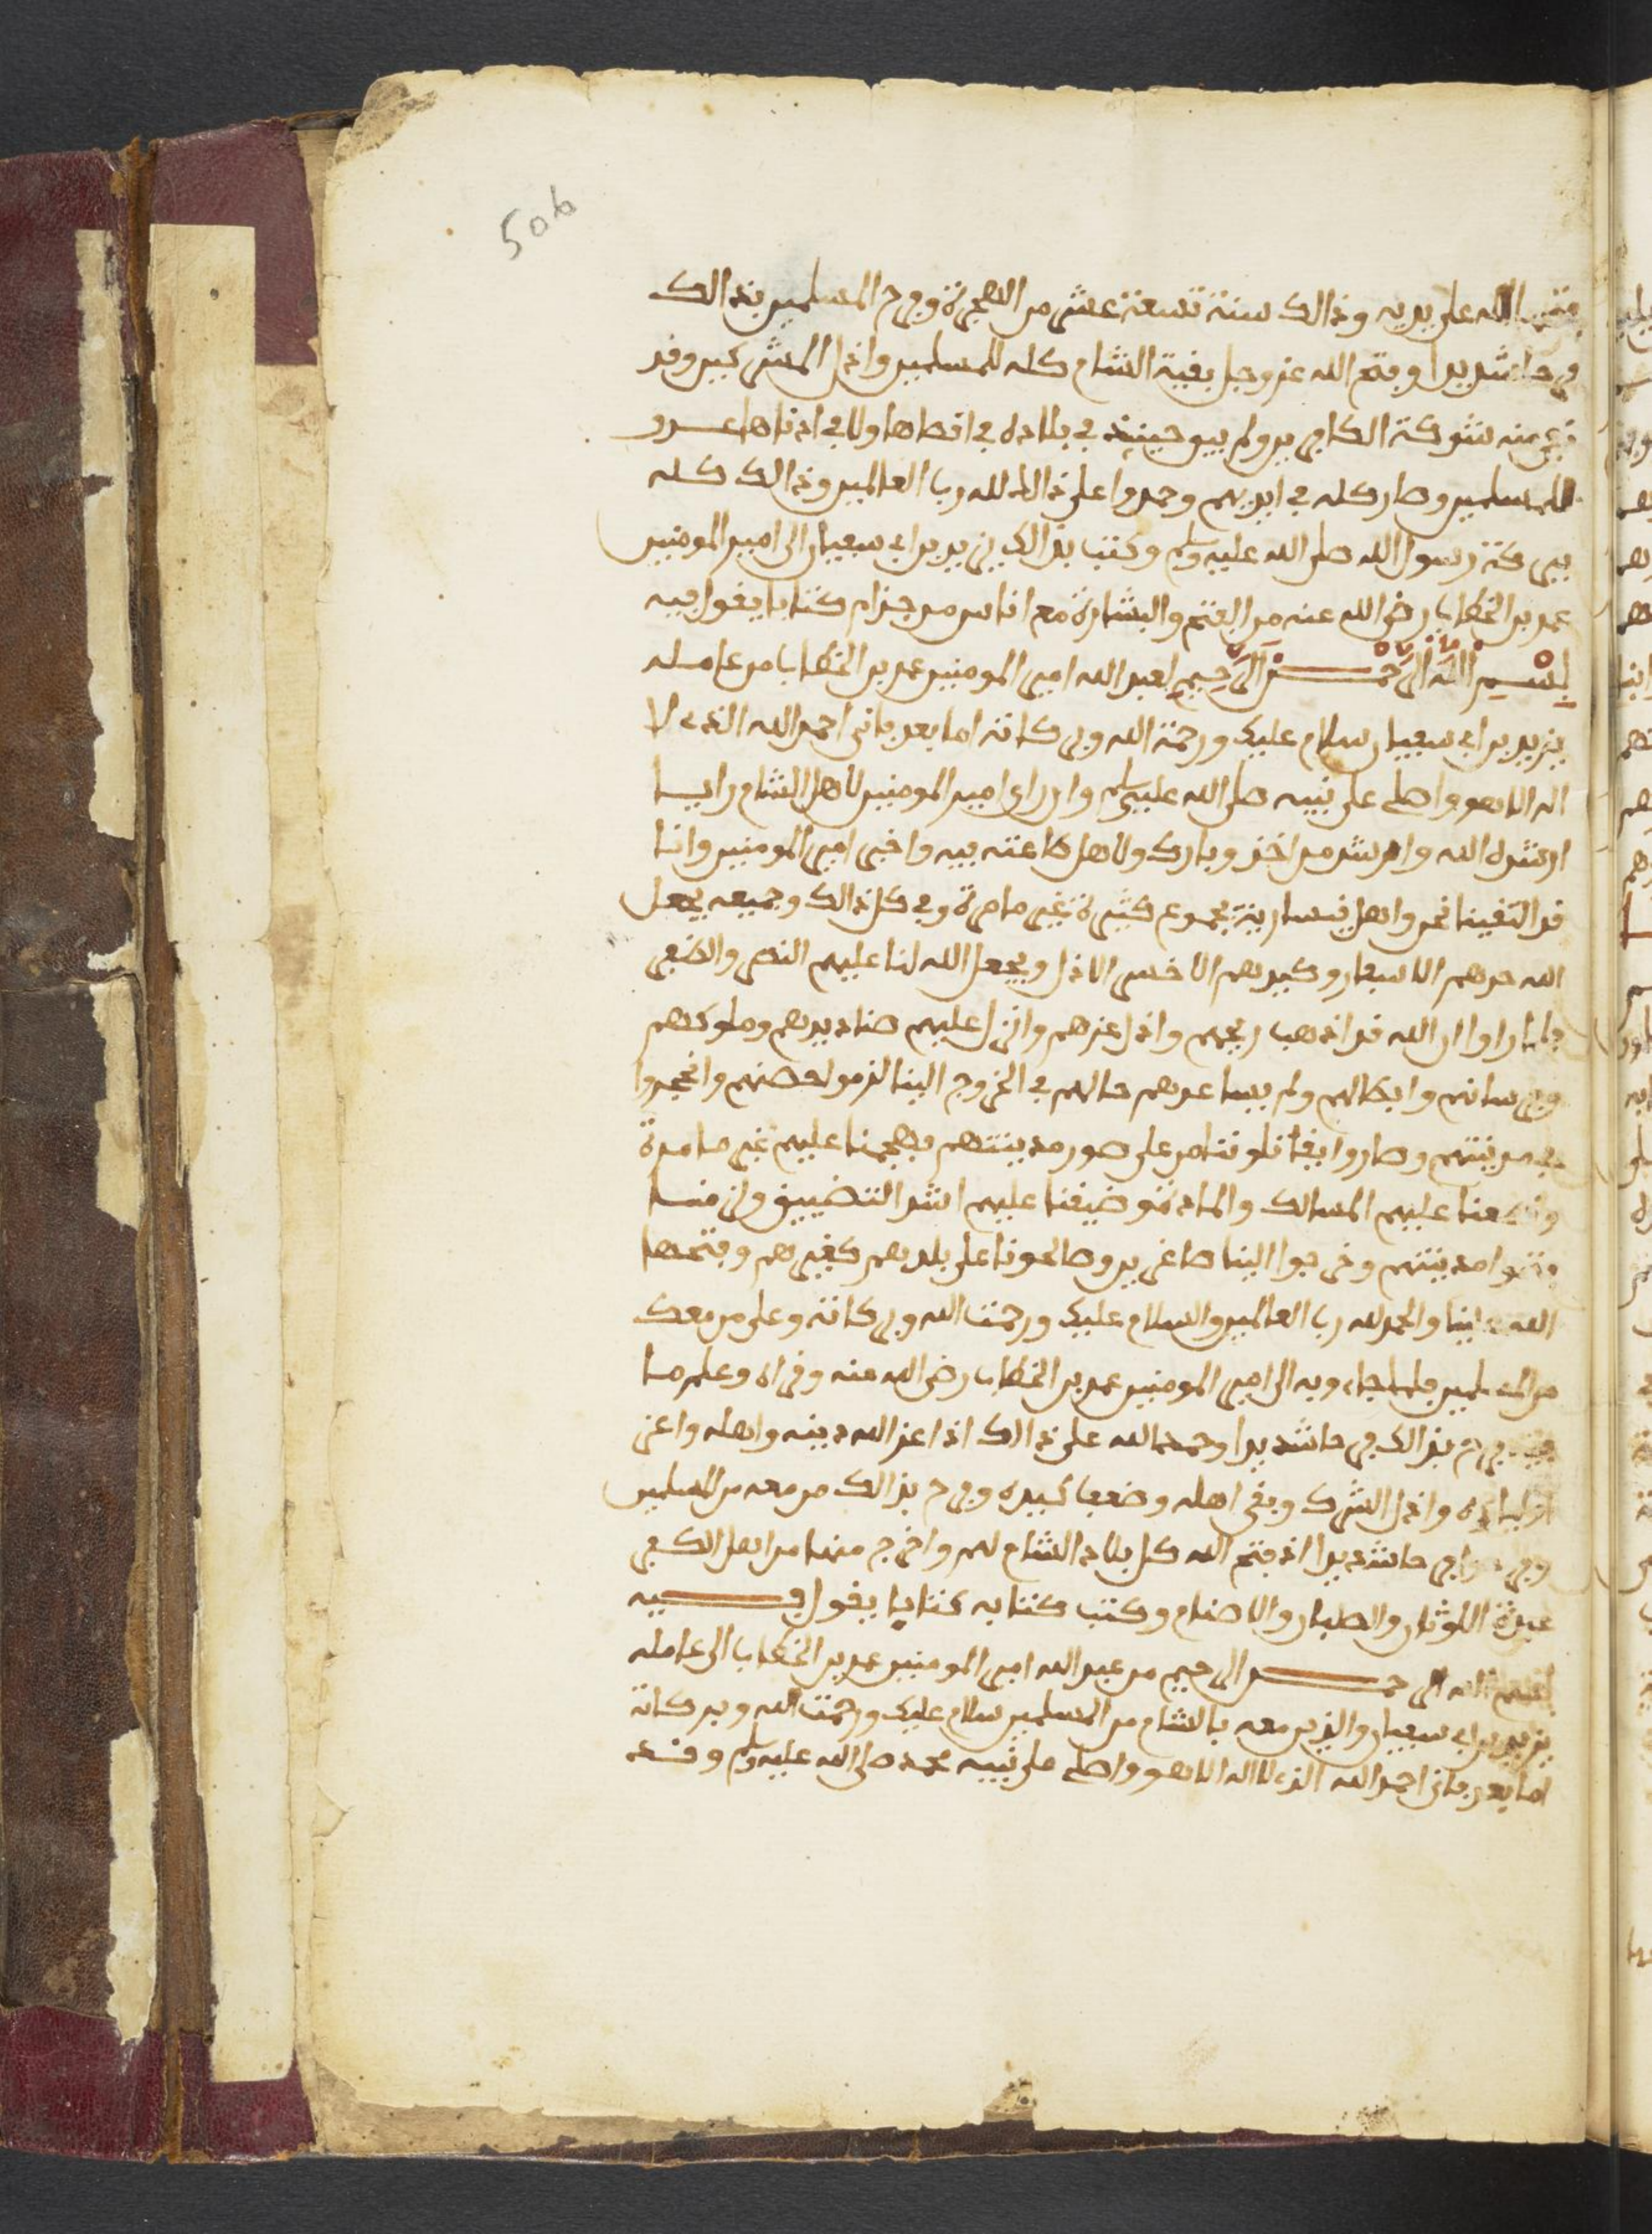 506
فتحها الله على يديه وذالك سنة تسعة عشر من الهجرة وفرح المسلمين بذالك
فرحا شديدا وفتح الله عز وجل بقية الشام كله للمسلمين واذل المشركين وقد
منه شوكة الكافرين ولم يبق حينيذ في بلاده في اقصاها ولا في ادناها عدو
للمسلمين وصار كله في ايديهم وحمدوا على ذالك لله رب العالمين وذالك كله
ببركة رسول الله صلى الله عليه وسلم وكتب بذالك يزيد بن ابي سفيان الى امير المومنين
عمر بن الخطاب رضي الله عنه من الفتح والبشارة مع اناس من جذام كتابا يقول فيه
بسم الله الرحمن الرحيم لعبد الله امير المومنين عمر بن الخطاب من عامله
يزيد بن ابي سفيان سلام عليك ورحمة الله وبركاته اما بعد فاني احمد الله الذي لا
اله الا هو واصلي على نبيه صلى الله عليه وسلم وان راي امير المومنين لاهل الشام رايا
ارشده الله وارشد من اخذ وبارك ولاهل طاعته فيه واخبر امير المومنين وانا
قد التقينا نحن واهل قيسارية بجموع كثيرة غير ما مرة وفي كل ذالك وجميعه يجعل
الله حدهم الاسفل وكيدهم الاخس الاذل ويجعل الله لنا عليهم النصر والظفر
فلما راوا ان الله قد اذهب ريحهم واذل عزهم وانزل عليهم صناديدهم وملوكهم
وفرسانهم وابطالهم ولم يساعدهم حالهم في الخروج الينا لزموا حصنهم وانحجروا
في مدينتهم وصاروا يقاتلوننا من على صور مدينتهم فهجمنا عليهم غير ما مرة
وقطعنا عليهم المسالك والمادة وضيقنا عليهم اشد التضييق
مدينتهم وخرجوا الينا صاغرين وصالحونا على بلدهم كغيرهم وفتحها
الله علينا والحمد لله رب العالمين والسلام عليك ورحمت الله وبركاته وعلى من معك
من المسلمين فلما جاء وبه الى امير المومنين عمر بن الخطاب رضي الله عنه وقراه وعلم ما
فيه فرح بذالك فرحا شديدا وحمد الله على ذالك اذا اعز الله دينه واهله واعز
اولياءه واذل الشرك وبقي اهله وضعف كيده وفرح بذالك من معه من المسلمين
وفرحوا فرحا شديدا اذ فتح الله كل بلاد الشام لهم واخرج منها من اهل الكفر
عبدة الاوثان والصلبان والاصنام وكتب كتابه كتابا يقول فيه
بسم الله الرحمن الرحيم من عبد الله امير المومنين عمر بن الخطاب الى عامله
يزيد بن ابي سفيان والذين معه بالشام من المسلمين سلام عليك ورحمت الله وبركاته
اما بعد فاني احمد الله الذي لا اله الا هو واصلي على نبيه محمد صلى الله عليه وسلم وقد